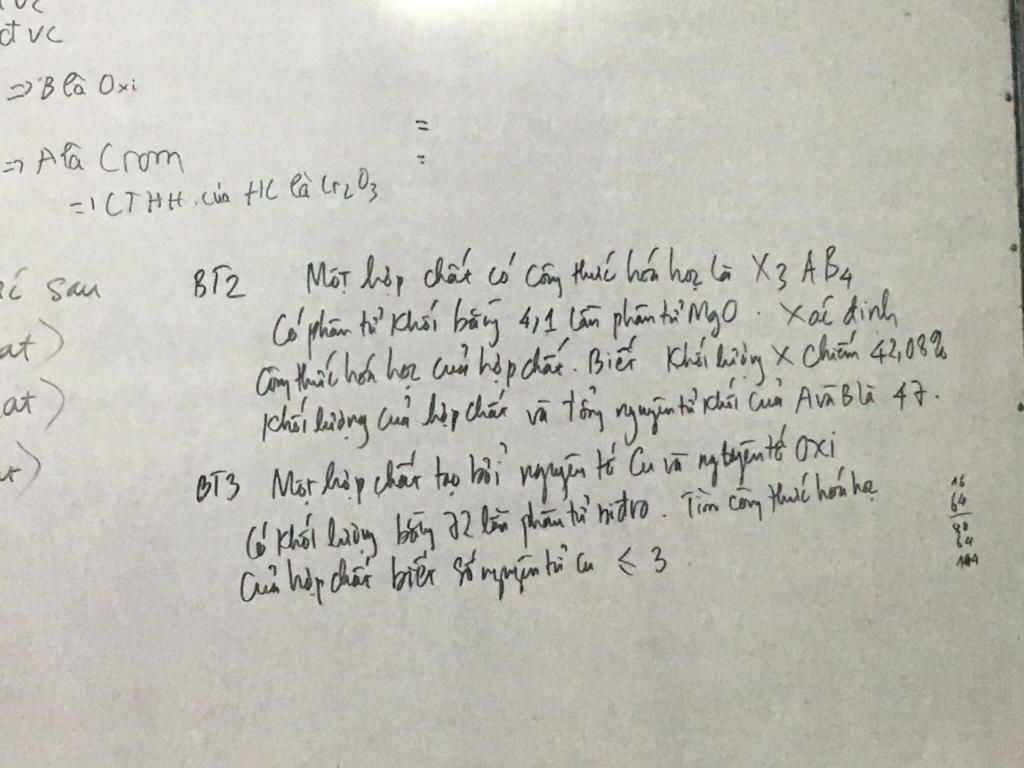 đvC
⇒ B là Oxi
=
⇒ A là Crom
=
⇒ CTHH của HC là Cr2O3
sau
BT2 Một hợp chất có công thức hóa học là X3AB4
at)
Có phân tử khối bằng 4,1 lần phân tử MgO. Xác định
công thức hóa học của hợp chất. Biết khối lượng X chiếm 42,08%
at)
khối lượng của hợp chất và tổng nguyên tử khối của A và B là 47.
BT3 Một hợp chất tạo bởi nguyên tố Cu và nguyên tố Oxi
Có khối lượng bằng 72 lần phân tử hiđro. Tìm công thức hóa học
của hợp chất biết số nguyên tử Cu ≤ 3
16
64
80
64